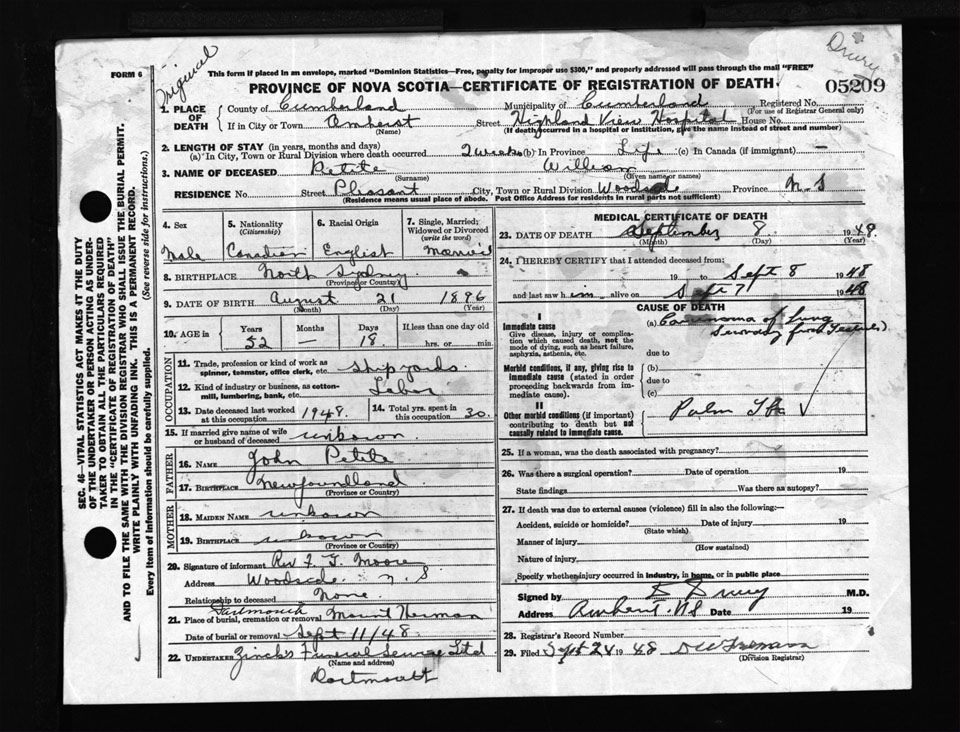 Original
Drury
FORM 6
This form if placed in an envelope, marked "Dominion Statistics—Free, penalty for improper use $300," and properly addressed will pass through the mail "FREE"
PROVINCE OF NOVA SCOTIA—CERTIFICATE OF REGISTRATION OF DEATH
05209
1. PLACE OF DEATH
County of Cumberland Municipality of Cumberland Registered No.
(For use of Registrar General only)
If in City or Town Amherst Street Highland View Hospital House No.
(Name) (If death occurred in a hospital or institution, give the name instead of street and number)
2. LENGTH OF STAY (in years, months and days)
(a) In City, Town or Rural Division where death occurred 2 weeks (b) In Province Life (c) In Canada (if immigrant) —
3. NAME OF DECEASED Petite
(Surname) (Given name or names)
RESIDENCE No. Street Pleasant City, Town or Rural Division Woodside Province N S
(Residence means usual place of abode. Post Office Address for residents in rural parts not sufficient)
4. Sex
Male
5. Nationality
(Citizenship)
Canadian
6. Racial Origin
English
7. Single, Married, Widowed or Divorced
(write the word)
Married
8. BIRTHPLACE North Sydney
(Province or Country)
9. DATE OF BIRTH August 21 1896
(Month) (Day) (Year)
10. AGE in
Years Months Days If less than one day old
52 — 18 hrs. or min.
OCCUPATION
11. Trade, profession or kind of work as
spinner, teamster, office clerk, etc. shipyards
12. Kind of industry or business, as cotton-
mill, lumbering, bank, etc. Labor
13. Date deceased last worked
at this occupation 1948.
14. Total yrs. spent in
this occupation 30.
15. If married give name of wife
or husband of deceased unkown
FATHER
16. NAME John Petite
17. BIRTHPLACE Newfoundland
(Province or Country)
MOTHER
18. MAIDEN NAME unkown
19. BIRTHPLACE unkown
(Province or Country)
20. Signature of informant Rev F. T. Moore
Address Woodside N. S
Relationship to deceased None.
Dartmouth
21. Place of burial, cremation or removal Mount Herman
Date of burial or removal Sept 11/48
22. UNDERTAKER Zinck's Funeral Service Ltd
(Name and address)
Dartmouth
MEDICAL CERTIFICATE OF DEATH
23. DATE OF DEATH September 8 1948.
(Month) (Day) (Year)
24. I HEREBY CERTIFY that I attended deceased from:
19 to Sept 8 1948
and last saw him alive on Sept 7 1948
CAUSE OF DEATH
I
Immediate cause
Give disease, injury or complica-
tion which caused death, not the
mode of dying, such as heart failure,
asphyxia, asthenia, etc.
(a) Carcinoma of lung
due to
Morbid conditions, if any, giving rise to
immediate cause (stated in order
proceeding backwards from im-
mediate cause).
(b)
due to
(c)
II
Other morbid conditions (if important)
contributing to death but not
causally related to immediate cause.
25. If a woman, was the death associated with pregnancy?
26. Was there a surgical operation? Date of operation 19
State findings Was there an autopsy?
27. If death was due to external causes (violence) fill in also the following:—
Accident, suicide or homicide? Date of injury 19
(State which)
Manner of injury
(How sustained)
Nature of injury
Specify whether injury occurred in industry, in home, or in public place
Signed by D Drury M.D.
Address Amherst. NS Date 19
28. Registrar's Record Number
29. Filed Sept 24 1948
(Division Registrar)
SEC. 46—VITAL STATISTICS ACT MAKES IT THE DUTY
OF THE UNDERTAKER OR PERSON ACTING AS UNDER-
TAKER TO OBTAIN ALL THE PARTICULARS REQUIRED
IN THE "CERTIFICATE OF REGISTRATION OF DEATH"
AND TO FILE THE SAME WITH THE DIVISION REGISTRAR WHO SHALL ISSUE THE BURIAL PERMIT.
WRITE PLAINLY WITH UNFADING INK. THIS IS A PERMANENT RECORD.
Every item of information should be carefully supplied. (See reverse side for instructions.)